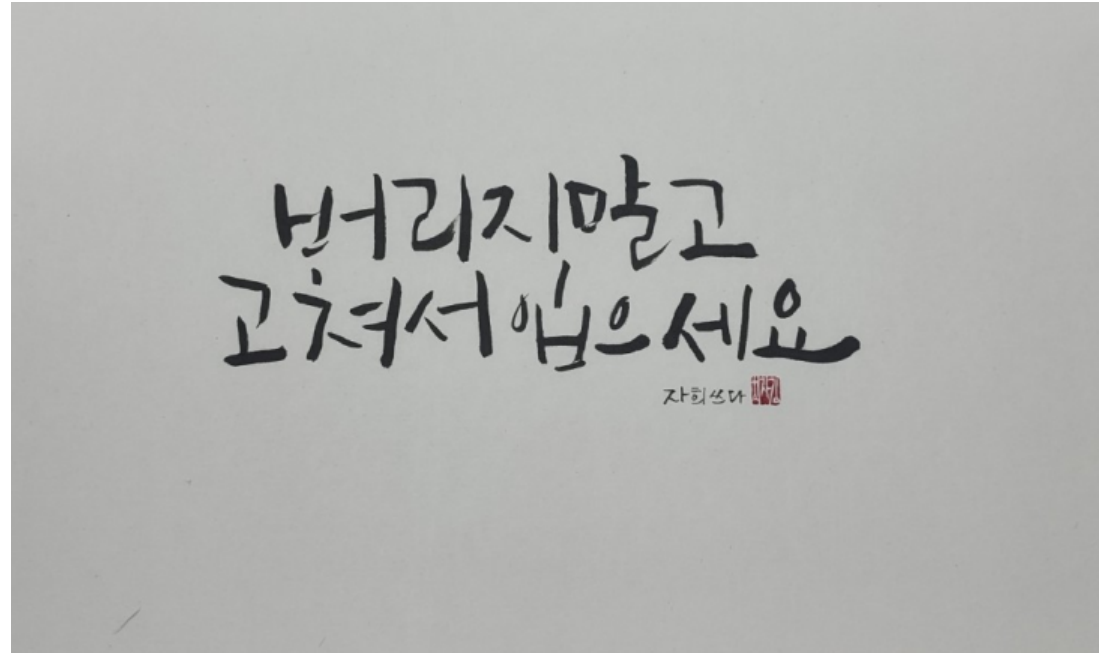 버리지말고
고쳐서 입으세요
자희쓰다